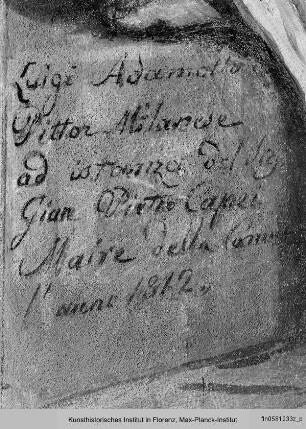 Luigi Adamollo
Pittor Milanese
ad istanza del Sig
Gian Pietro Capei
Maire della Comun
l'anno 1812.
Kunsthistorisches Institut in Florenz, Max-Planck-Institut
fln0581233z_p